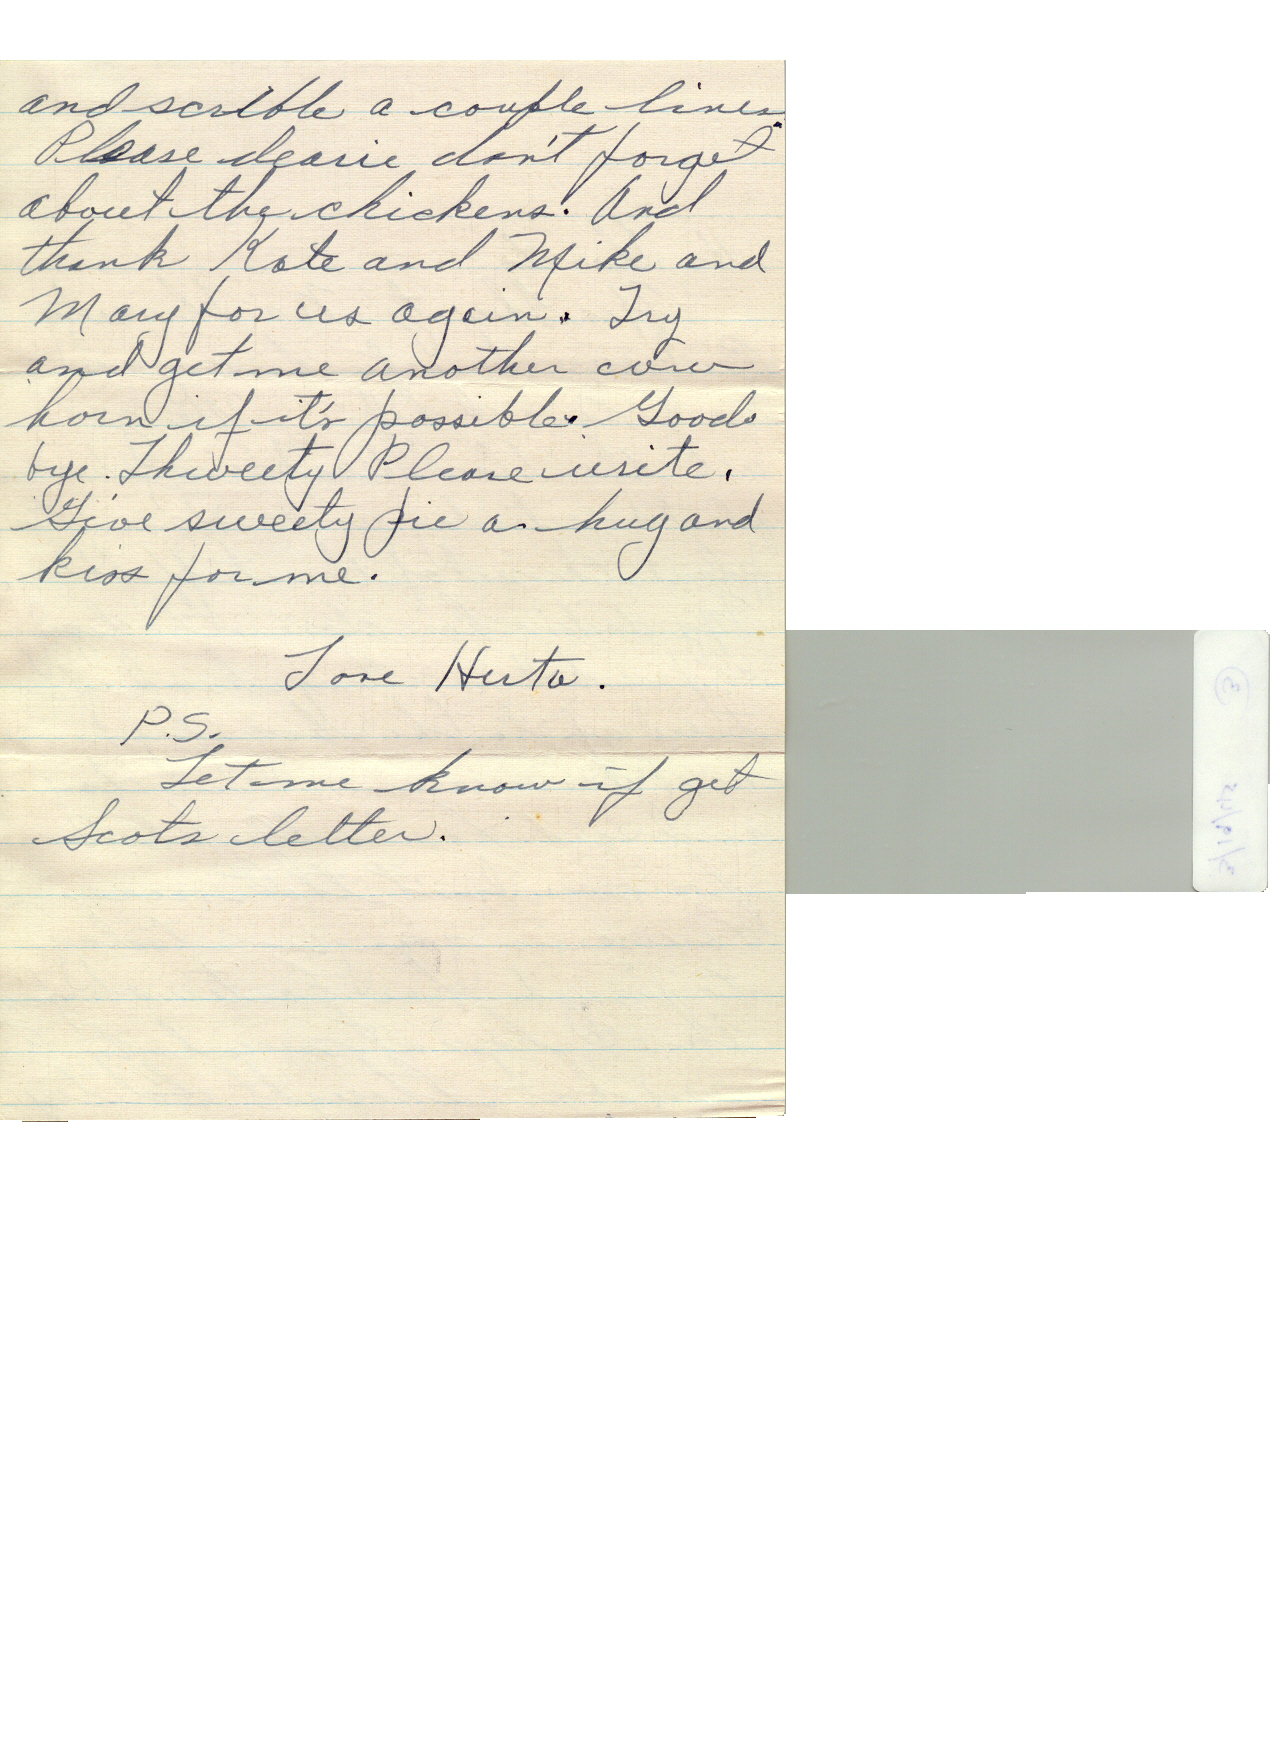 and scrible a couple lines.
Please dearie don't forget
about the chickens. And
thank Kate and Mike and
Mary for us again. Try
and get me another cow
horn if it's possible. Good
bye. Thweety Please write.
Give sweety pie a hug and
kiss for me.
Love Herta.
P.S.
Let me know if get
Scots letter.
3